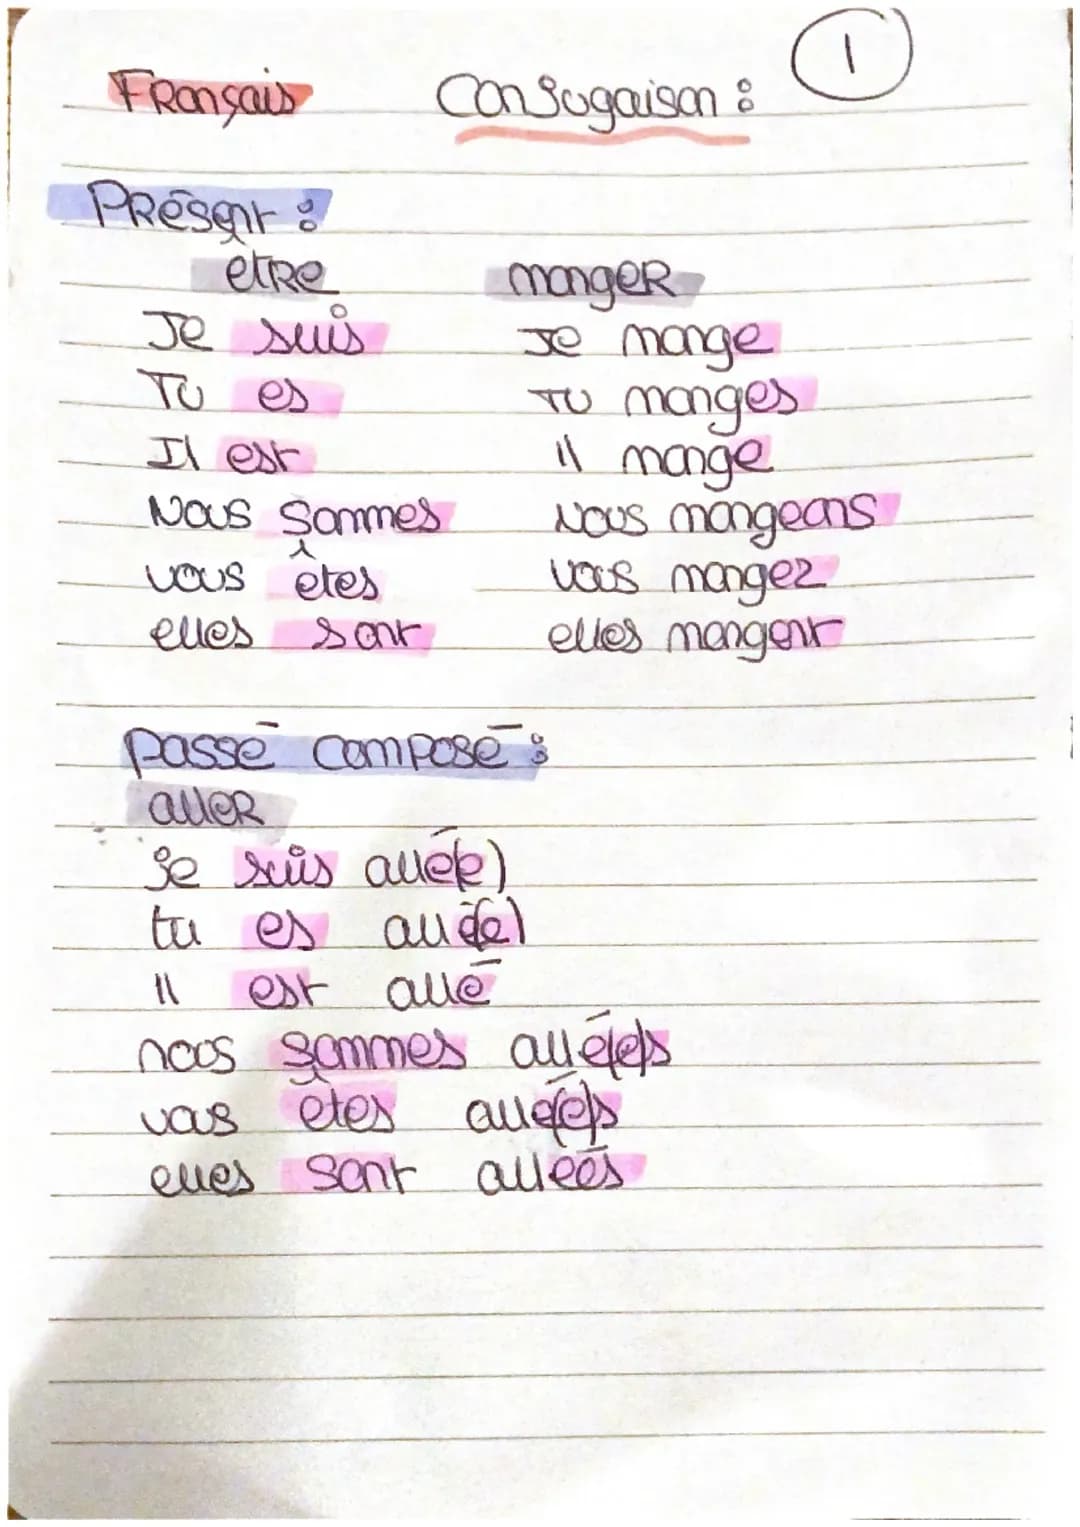 Français Conjugaison : 1
Présent :
être manger
Je suis Je mange
Tu es Tu manges
Il est Il mange
Nous sommes Nous mangeons
vous êtes vous mangez
elles sont elles mangent
passé composé :
aller
je suis allé(e)
tu es allé(e)
il est allé
nous sommes allé(e)s
vous êtes allé(e)s
elles sont allées